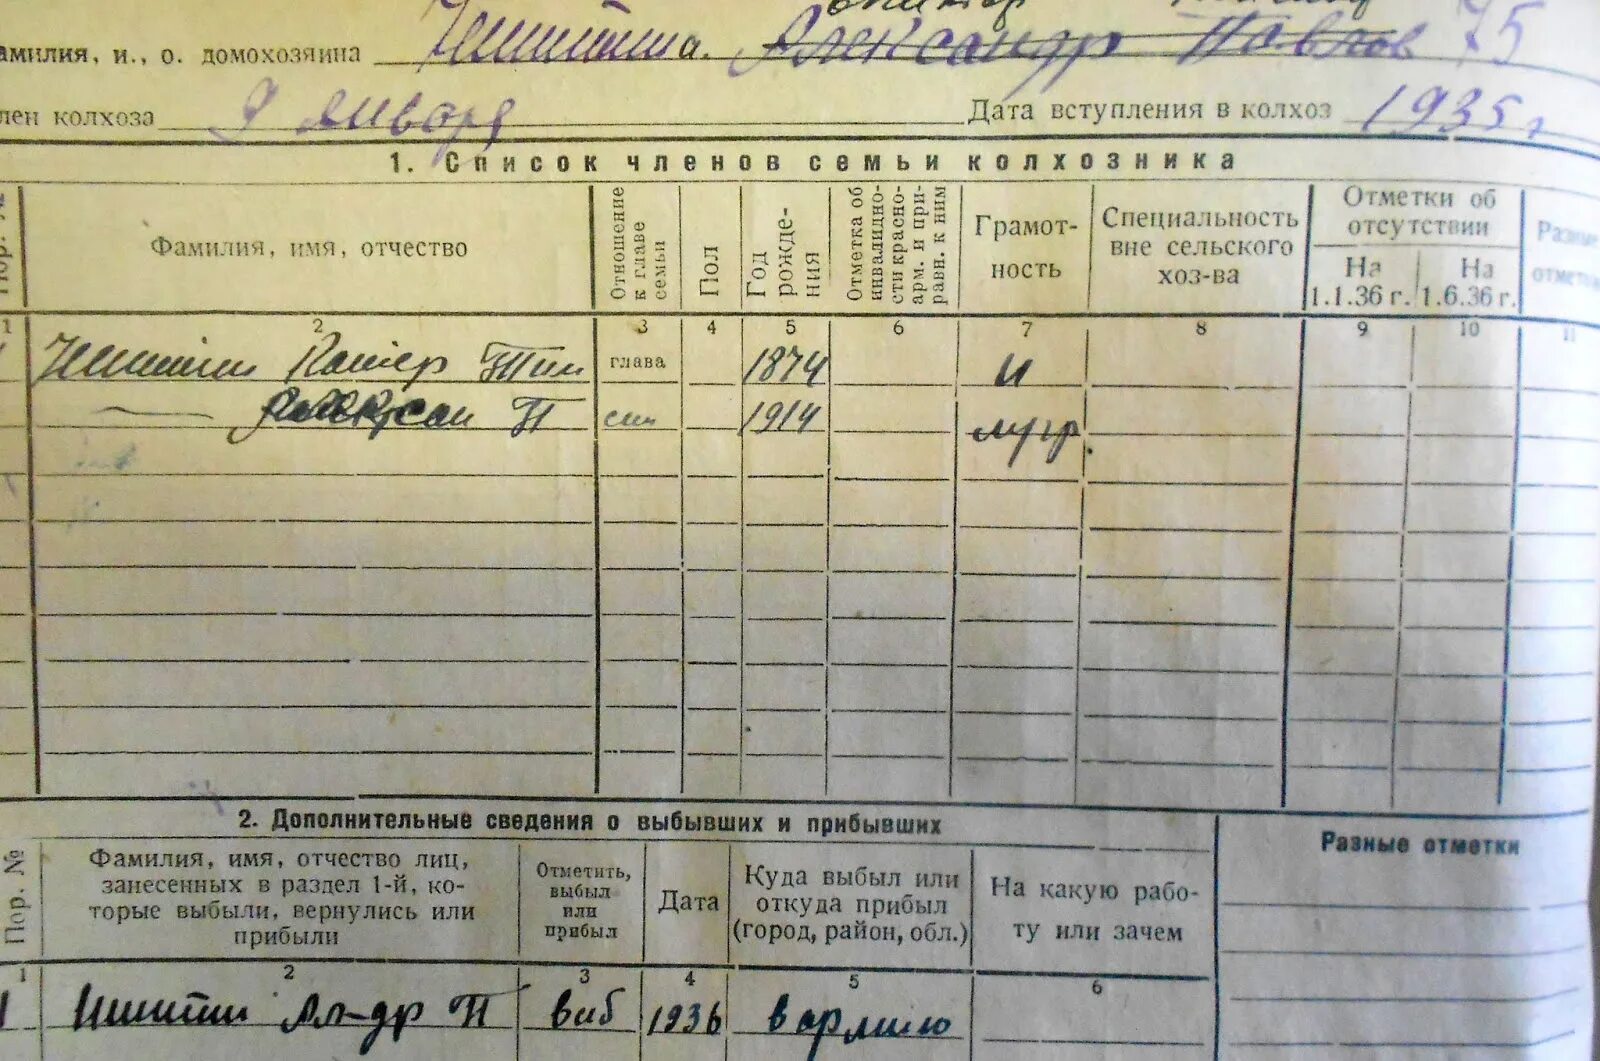 амилия, и., о. домохозяина Александр Павлов 75
лен колхоза 9 Января Дата вступления в колхоз 1935 г
1. Список членов семьи колхозника
Пор. №
Фамилия, имя, отчество
Отношение к главе семьи
Пол
Год рождения
Отметка об инвалидности красноарм. и приравн. к ним
Грамотность
Специальность вне сельского хоз-ва
Отметки об отсутствии
На 1.1.36 г.
На 1.6.36 г.
Разные отметки
1 2 3 4 5 6 7 8 9 10 11
глава 1874 н
П син 1914 мугр.
2. Дополнительные сведения о выбывших и прибывших
Разные отметки
Пор. №
Фамилия, имя, отчество лиц,
занесенных в раздел 1-й, ко-
торые выбыли, вернулись или
прибыли
Отметить,
выбыл
или
прибыл
Дата
Куда выбыл или
откуда прибыл
(город, район, обл.)
На какую рабо-
ту или зачем
1 2 3 4 5 6
1 Ал-др П виб 1936 в армию